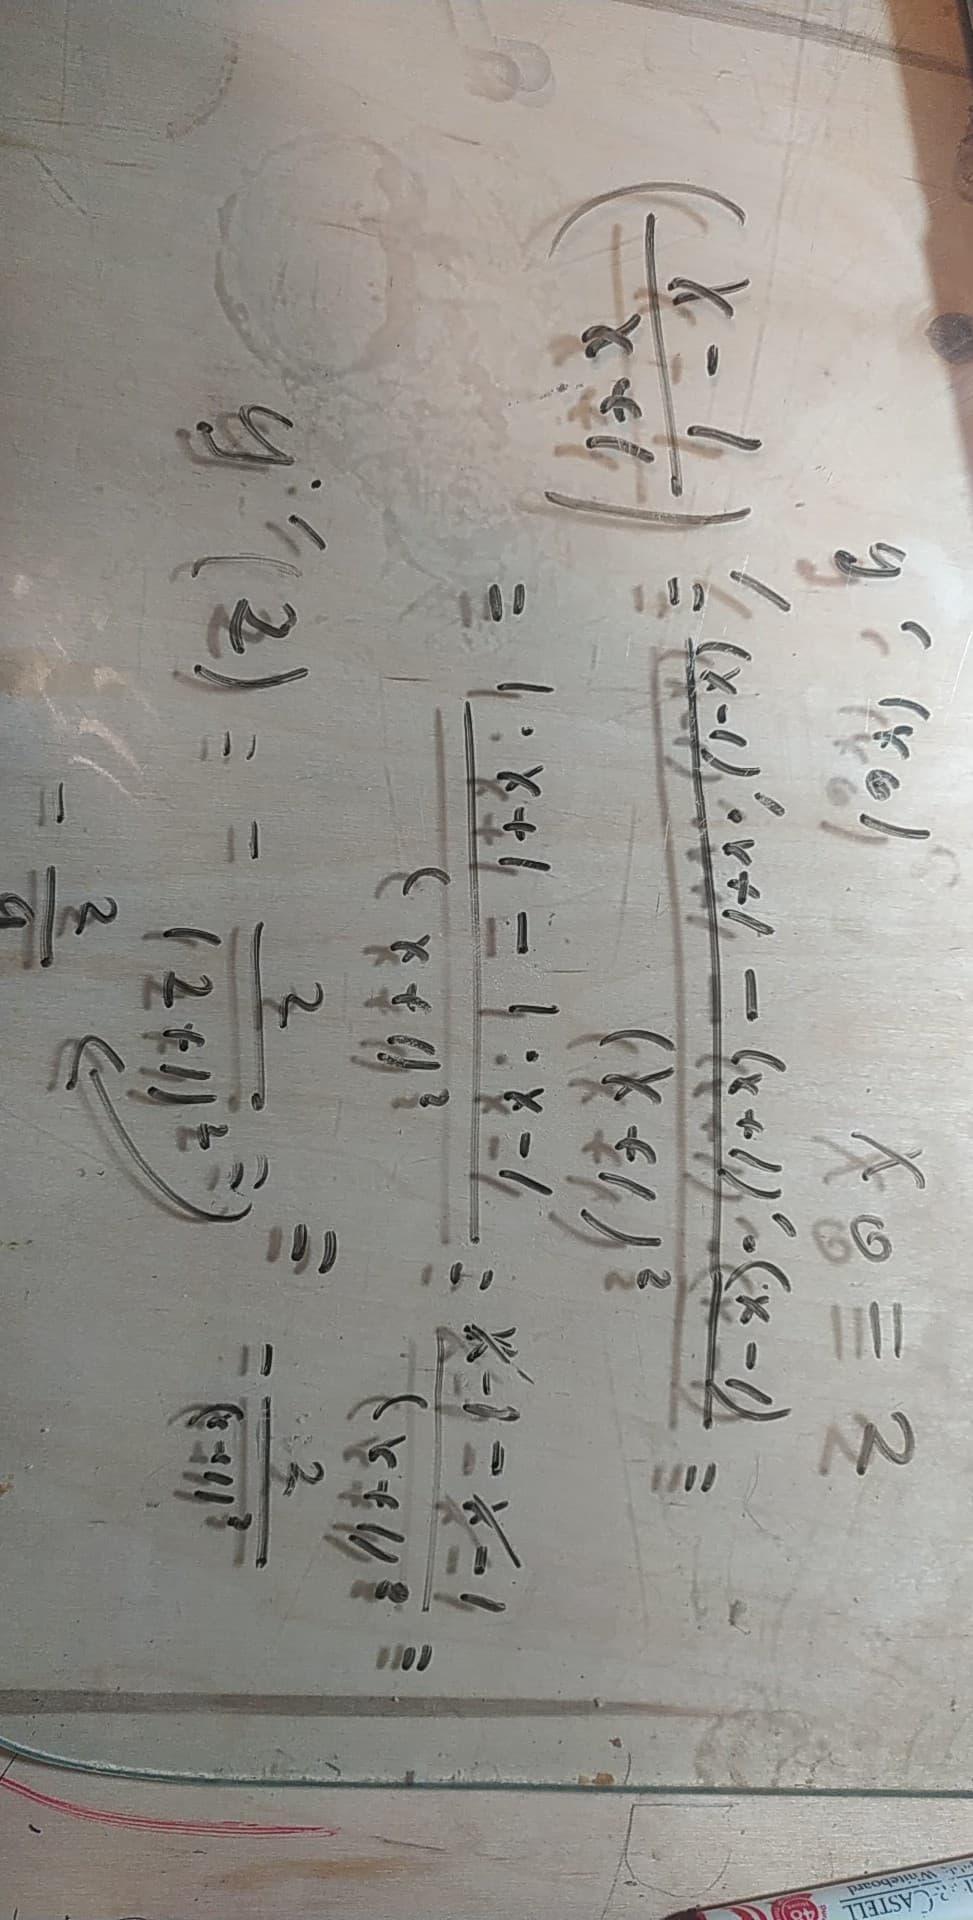 y'(x0) x0 = 2
(x - 1 / x + 1)' = (x-1)'·x+1 - (x+1)'·(x-1) / (x+1)² =
= 1·x+1 - 1·x-1 / (x+1)² = x-1-x-1 / (x+1)² =
= - 2 / (x-1)²
y'(2) = - 2 / (2+1)² =
- 2 / 9
CASTELL
Whiteboard
48